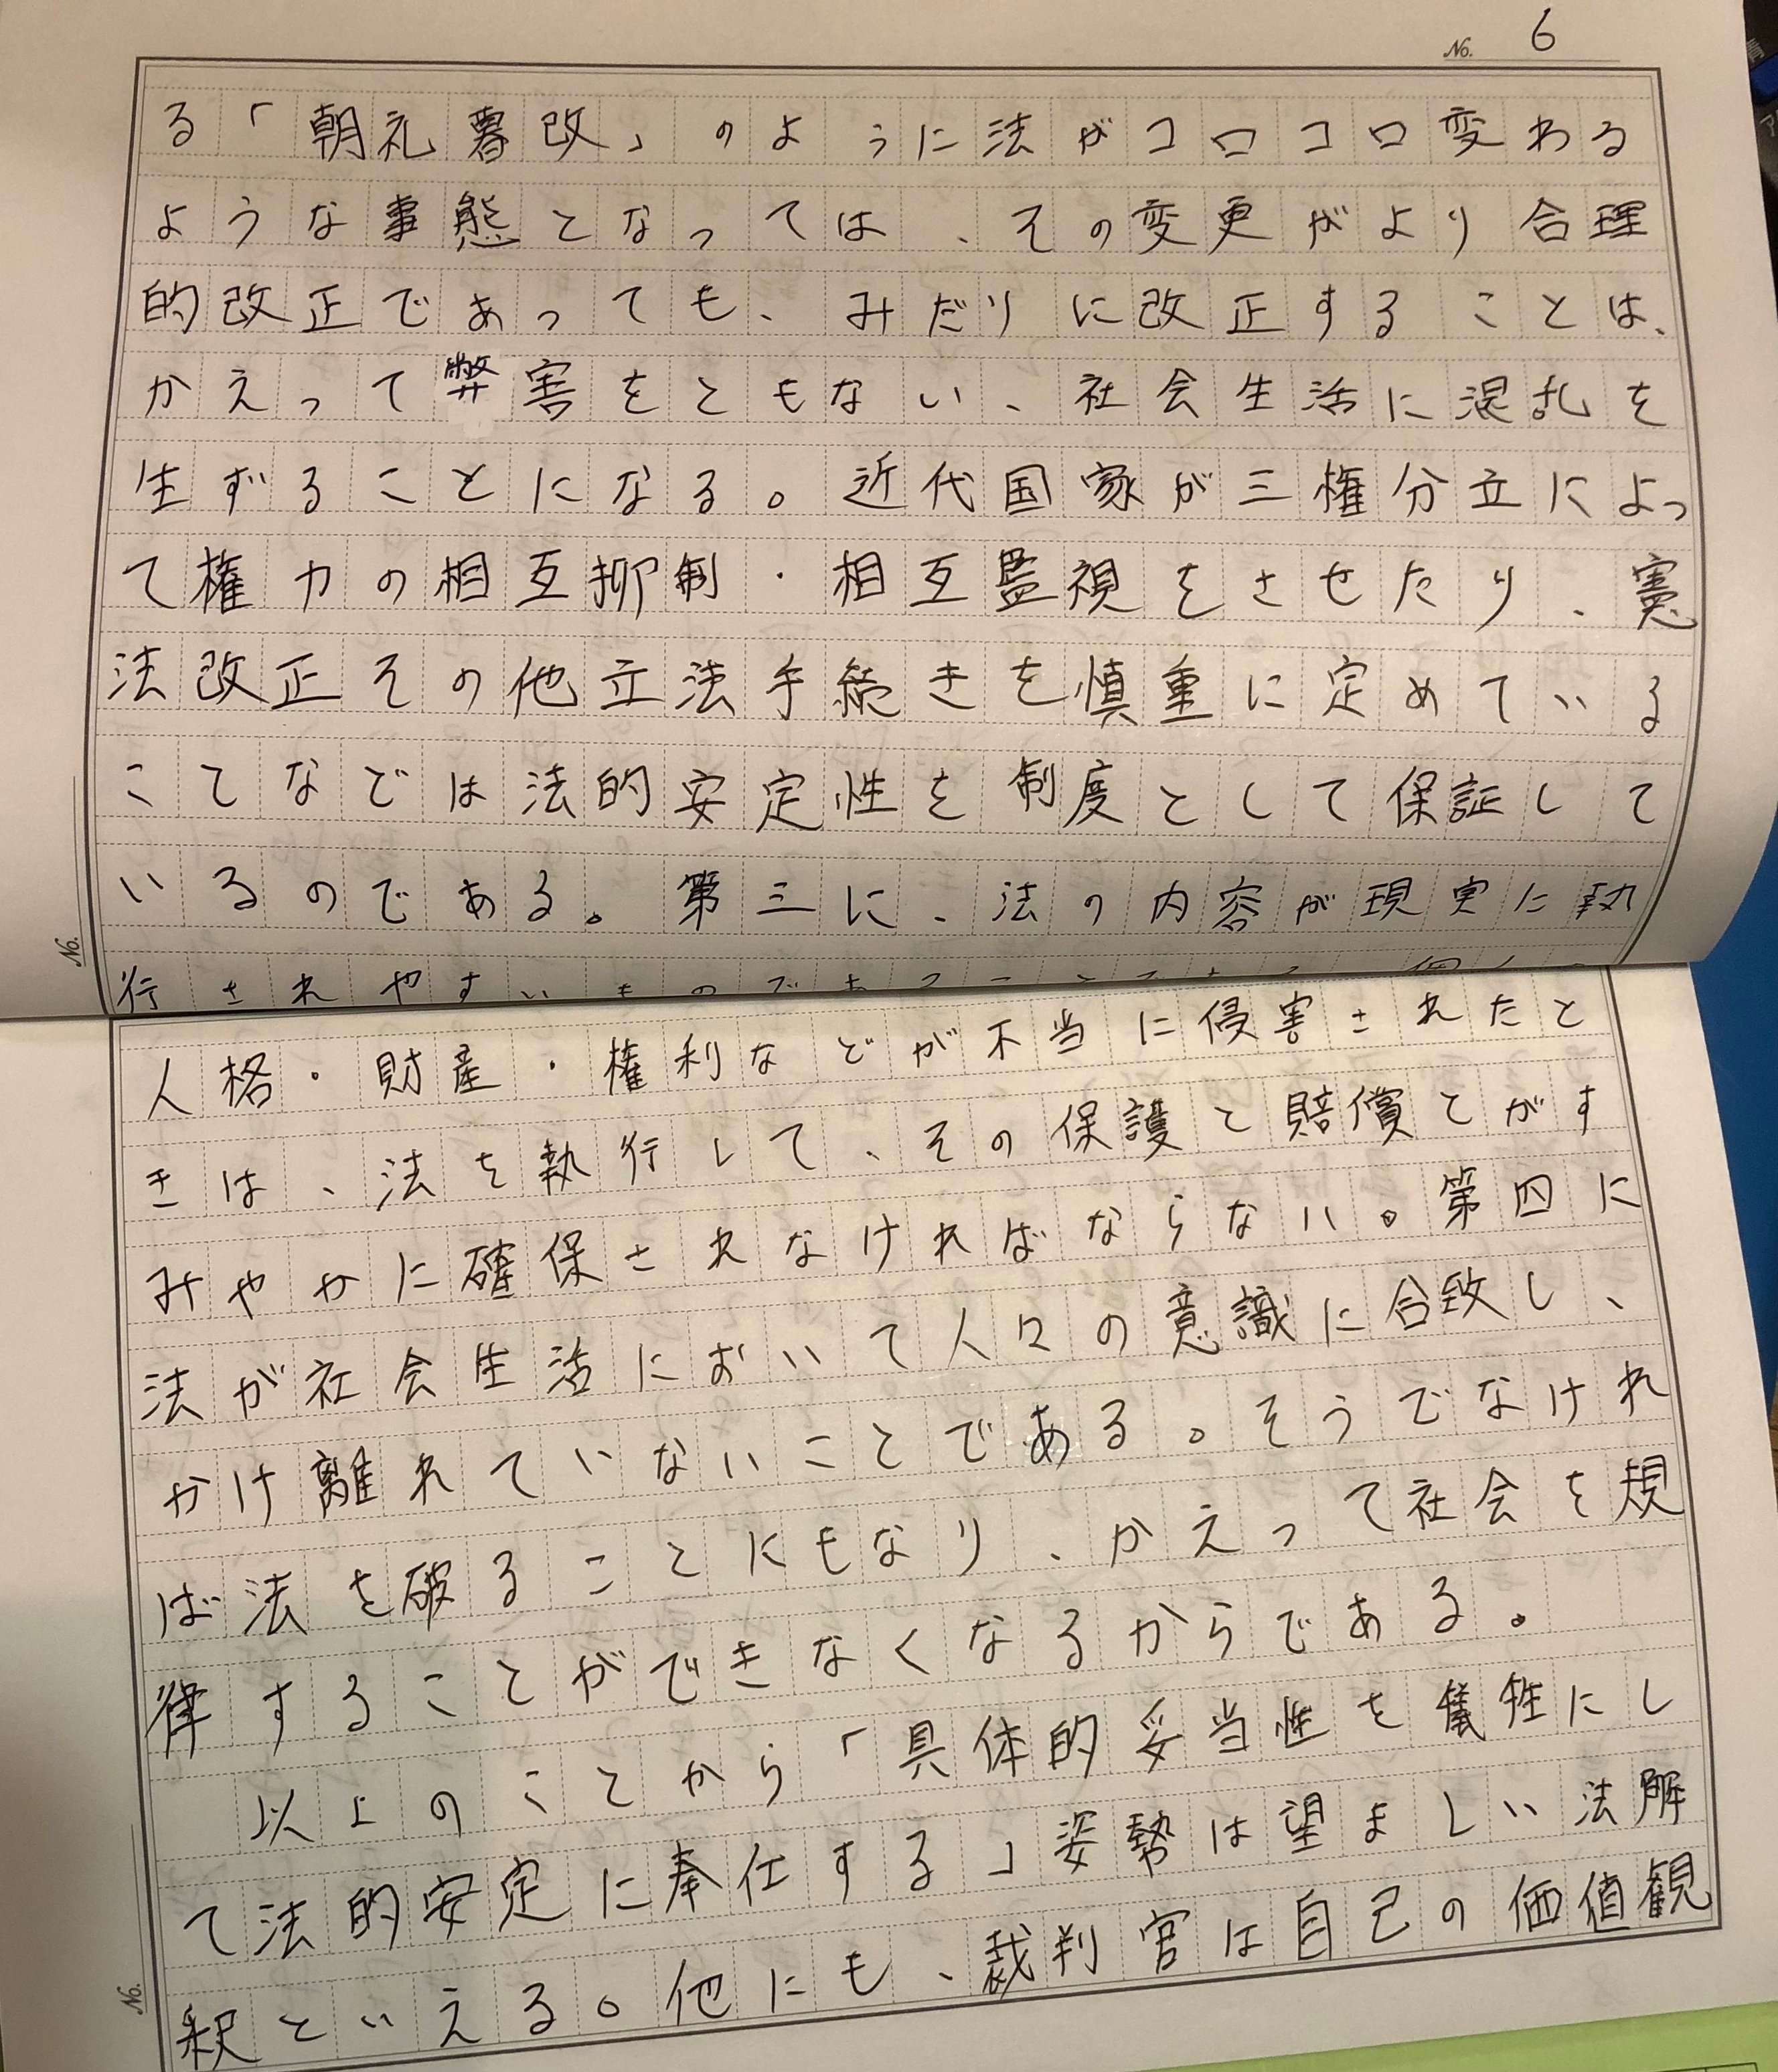 No. 6
る「朝礼暮改」のように法がコロコロ変わる
ような事態となっては、その変更がより合理
的改正であっても、みだりに改正することは、
かえって弊害をともない、社会生活に混乱を
生ずることになる。近代国家が三権分立によっ
て権力の相互抑制・相互監視をさせたり、憲
法改正その他立法手続きを慎重に定めている
ことなどは法的安定性を制度として保証して
いるのである。第三に、法の内容が現実に執
行されやすいものである
No.
人格・財産・権利などが不当に侵害されたと
きは、法を執行して、その保護と賠償とがす
みやかに確保されなければならない。第四に
法が社会生活において人々の意識に合致し、
かけ離れていないことである。そうでなけれ
ば法を破ることにもなり、かえって社会を規
律することができなくなるからである。
以上のことから「具体的妥当性を犠牲にし
て法的安定に奉仕する」姿勢は望ましい法解
釈といえる。他にも、裁判官は自己の価値観
No.